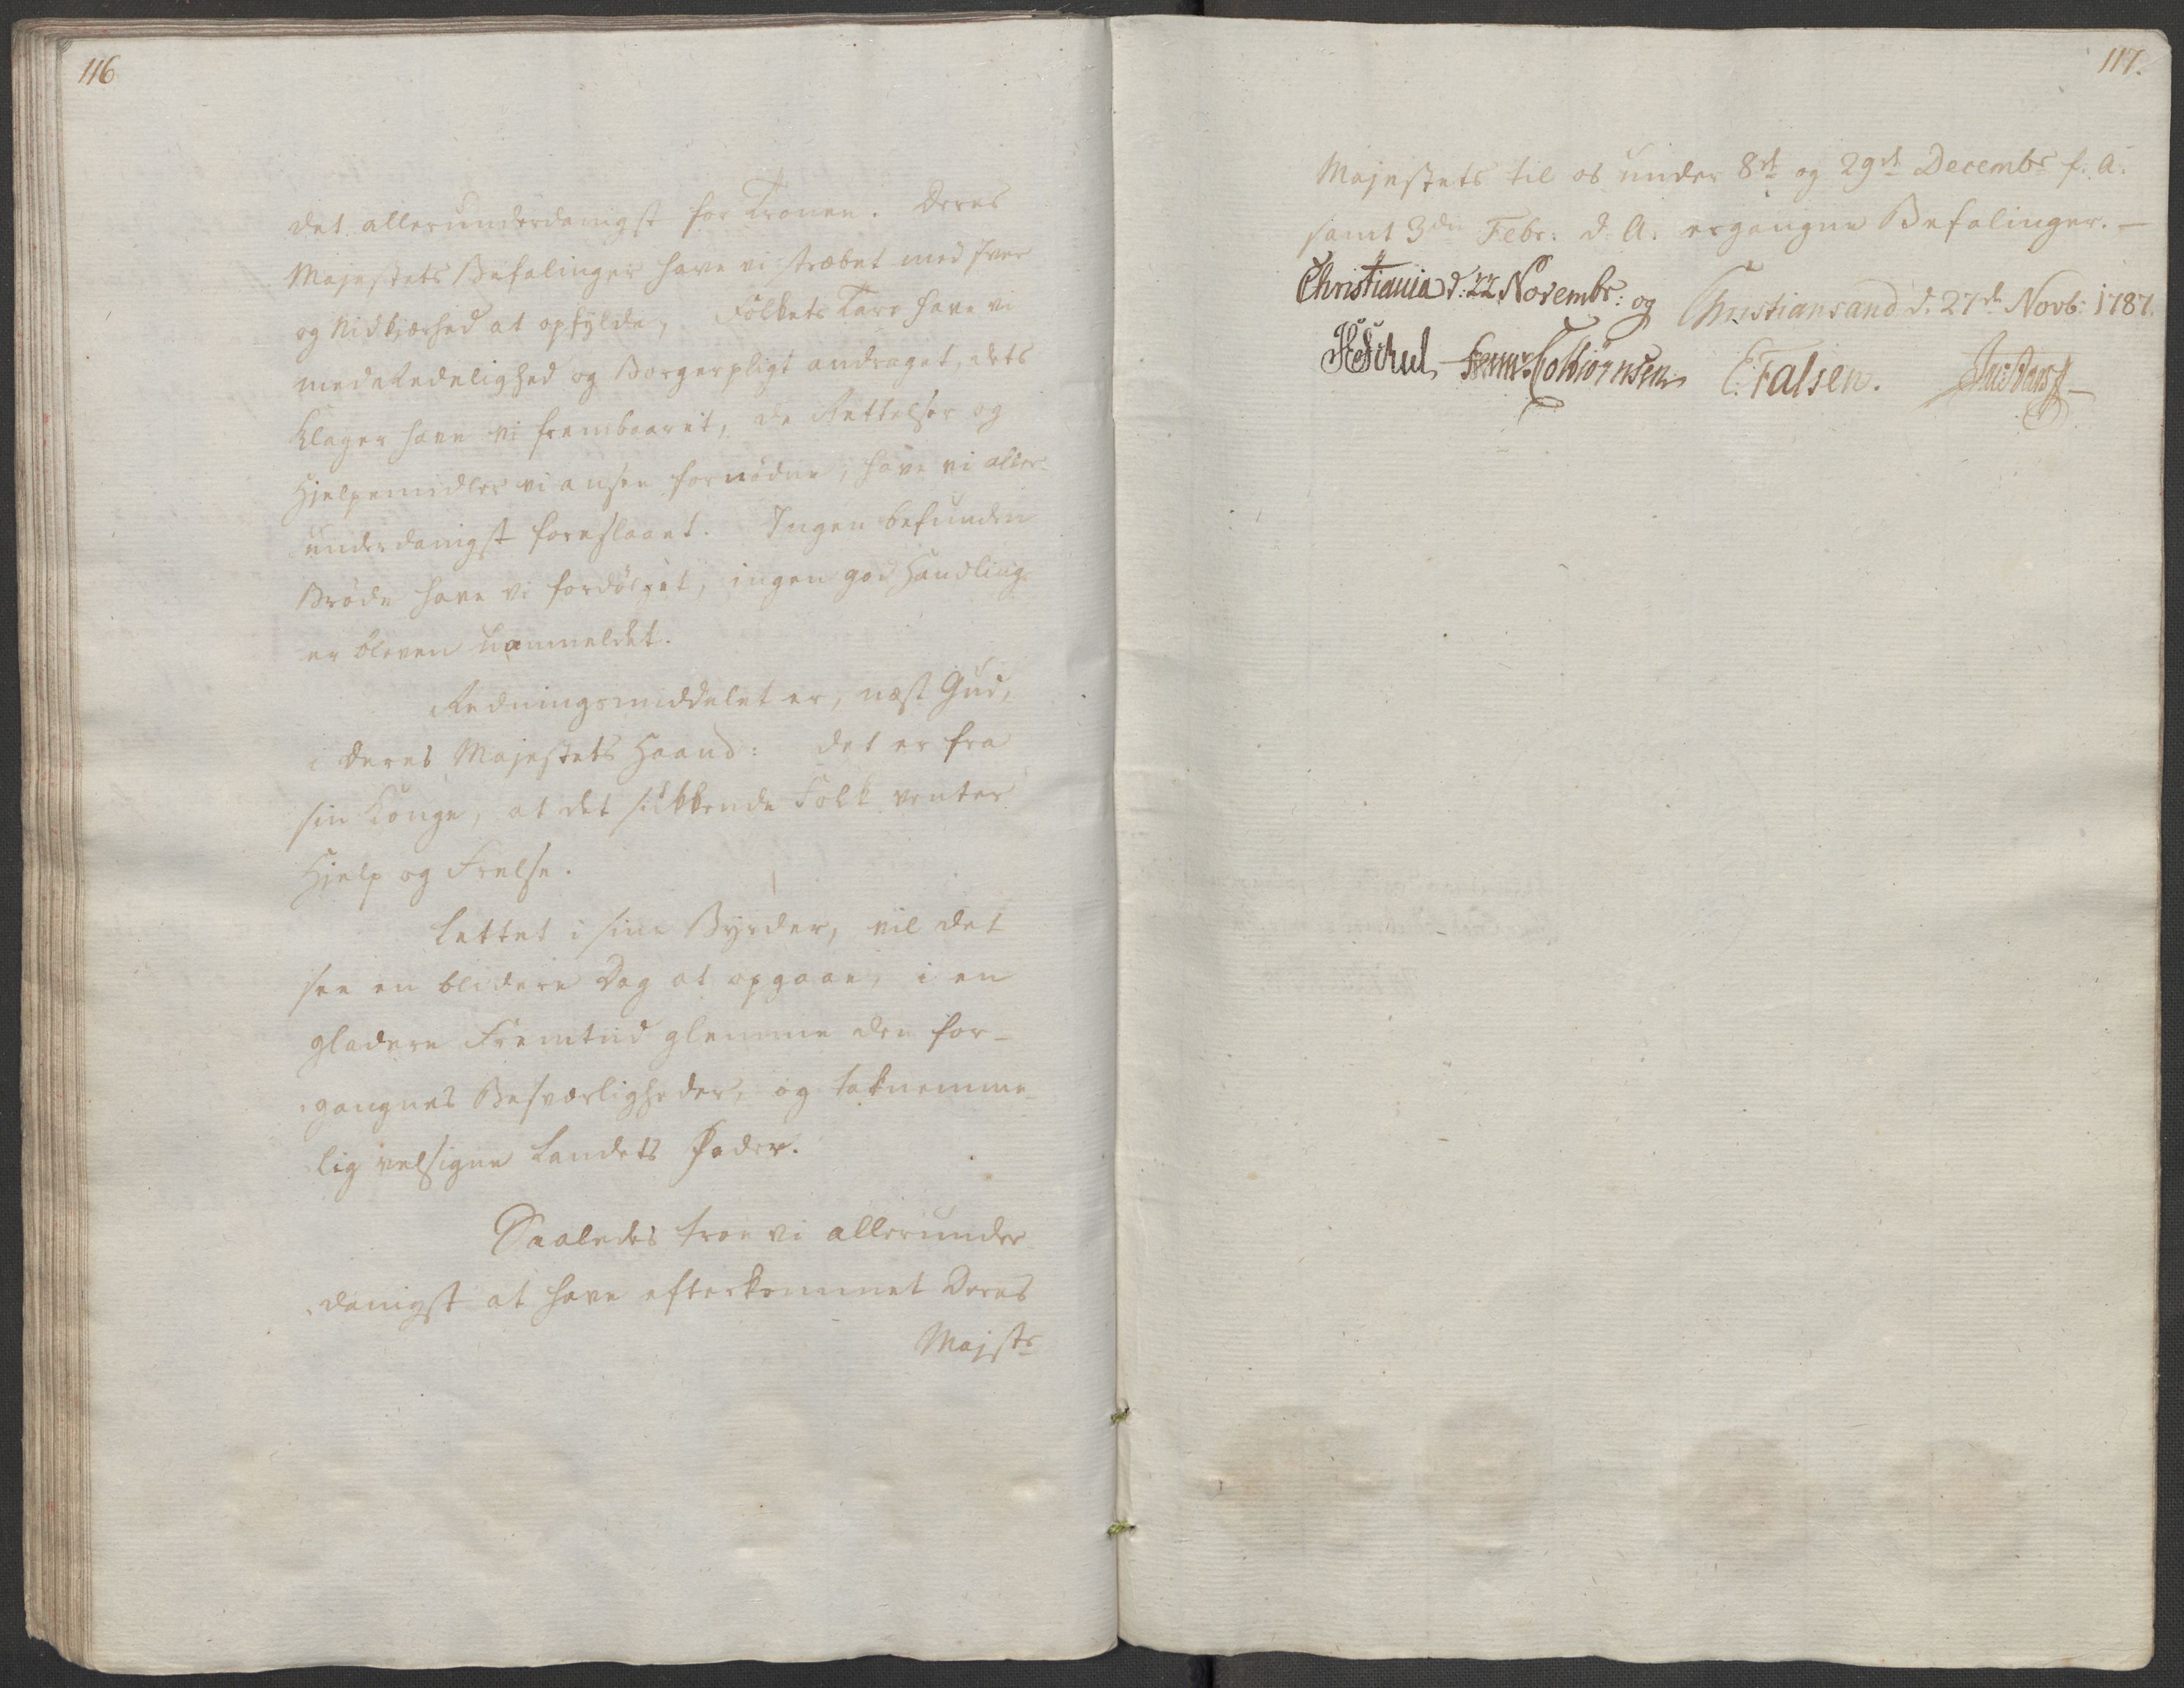 116
det allerunderdanigst for Tronen. Deres
Majestets Befalinger have vi stræbet med Iver
og Nidkjærhed at opfylde, Folkets Tarv have vi
med Redelighed og Borgerpligt andraget, dets
Klager have vi frembaaret, de Rettelser og
Hjelpemidler vi ansee fornødne, have vi aller-
underdanigst foreslaaet. Ingen befunden
Brøde have vi fordølget, ingen god Handling
er bleven uanmeldet.
Redningsmiddelet er, næst Gud,
i Deres Majestets Haand: det er fra
sin Konge, at det sukkende Folk venter
Hjelp og Frelse.
Lettet i sine Byrder, vil det
see en blidere Dag at opgaae, i en
gladere Fremtiid glemme den for-
gangnes Besværligheder, og taknemme-
lig velsigne Landets Fader.
Saaledes troe vi allerunder-
danigst at have efterkommet Deres
Majsts
117.
Majestets til os under 8de og 29de Decembr f. A.
samt 3die Febr: d. A. ergangne Befalinger. —
Christiania d: 22 Novembr: og Christiansand d. 27de Novb: 1787.
Colbiørnsen E. Falsen.